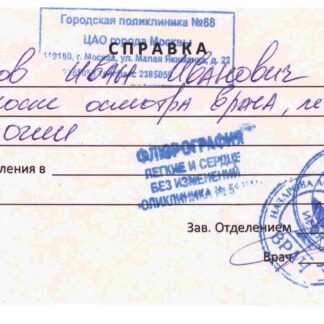 Городская поликлиника №68
ЦАО города Москвы
119180, г. Москва, ул. Малая Якиманка, д. 22
2385056
СПРАВКА
ов Иван Иванович
осмотра врача,
ФЛЮРОГРАФИЯ
ЛЕГКИЕ И СЕРДЦЕ
БЕЗ ИЗМЕНЕНИЙ
ОЛИКЛИНИКА №
ления в
Зав. Отделением
Врач
ВРАЧ
НАЗАРОВА